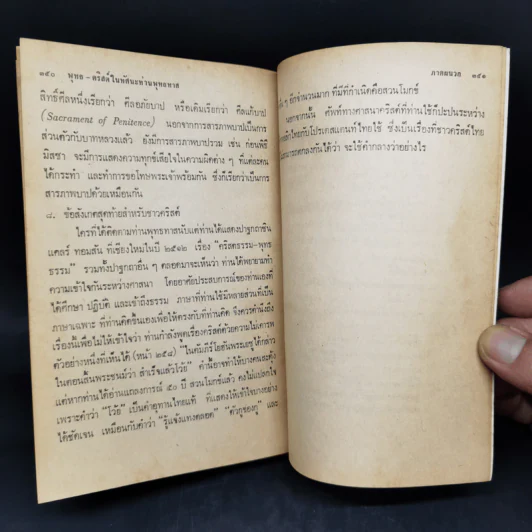 ๑๕๐ พุทธ - คริสต์ในทัศนะท่านพุทธทาส
สิทธิ์ศีลหนึ่งเรียกว่า ศีลอภัยบาป หรือเดิมเรียกว่า ศีลแก้บาป
(Sacrament of Penitence) นอกจากการสารภาพบาปเป็นการ
ส่วนตัวกับบาทหลวงแล้ว ยังมีการสารภาพบาปรวม เช่น ก่อนพิธี
มิสซา จะมีการแสดงความทุกข์เสียใจในความผิดต่าง ๆ ที่แต่ละคน
ได้กระทำ และทำการขอโทษพระเจ้าพร้อมกัน ซึ่งก็เรียกว่าเป็นการ
สารภาพบาปด้วยเหมือนกัน
๘. ข้อสังเกตสุดท้ายสำหรับชาวคริสต์
ใครที่ได้ติดตามท่านพุทธทาสนับแต่ท่านได้แสดงปาฐกถาซิน
แคลร์ ทอมสัน ที่เชียงใหม่ในปี ๒๕๑๒ เรื่อง "คริสตธรรม-พุทธ
ธรรม" รวมทั้งปาฐกถาอื่น ๆ ตลอดมาจะเห็นว่า ท่านได้พยายามทำ
ความเข้าใจกันระหว่างศาสนา โดยอาศัยประสบการณ์ของท่านเองที่
ได้ศึกษา ปฏิบัติ และเข้าถึงธรรม ภาษาที่ท่านใช้มีหลายส่วนที่เป็น
ภาษาเฉพาะ ที่ท่านคิดขึ้นเองเพื่อให้ตรงกับที่ท่านคิด จึงควรคำนึงถึง
เรื่องนี้เพื่อไม่ให้เข้าใจว่า ท่านกำลังพูดเรื่องคริสต์ด้วยความไม่เคารพ
ตัวอย่างหนึ่งที่เห็นได้ (หน้า ๒๕๔) "ในคัมภีร์โยฮันพระเยซูได้กล่าว
ในตอนสิ้นพระชนม์ว่า สำเร็จแล้วโว้ย" คำนี้อาจทำให้บางคนสะดุ้ง
แต่หากท่านได้อ่านแถลงการณ์ ๕๐ ปี สวนโมกข์แล้ว คงไม่แปลกใจ
เพราะคำว่า "โว้ย" เป็นคำอุทานไทยแท้ ที่แสดงให้เข้าใจบางอย่าง
ได้ชัดเจน เหมือนกับคำว่า "รู้แจ้งแทงตลอด" "ตัวกูของกู" และ
ภาคผนวก ๑๕๑
ๆ อีกจำนวนมาก ที่มีที่กำเนิดคือสวนโมกข์
นอกจากนั้น ศัพท์ทางศาสนาคริสต์ที่ท่านใช้ก็ปะปนระหว่าง
ไทยกับโปรเตสแตนท์ไทยใช้ ซึ่งเป็นเรื่องที่ชาวคริสต์ไทย
ตกลงกันได้ว่า จะใช้คำกลางว่าอย่างไร